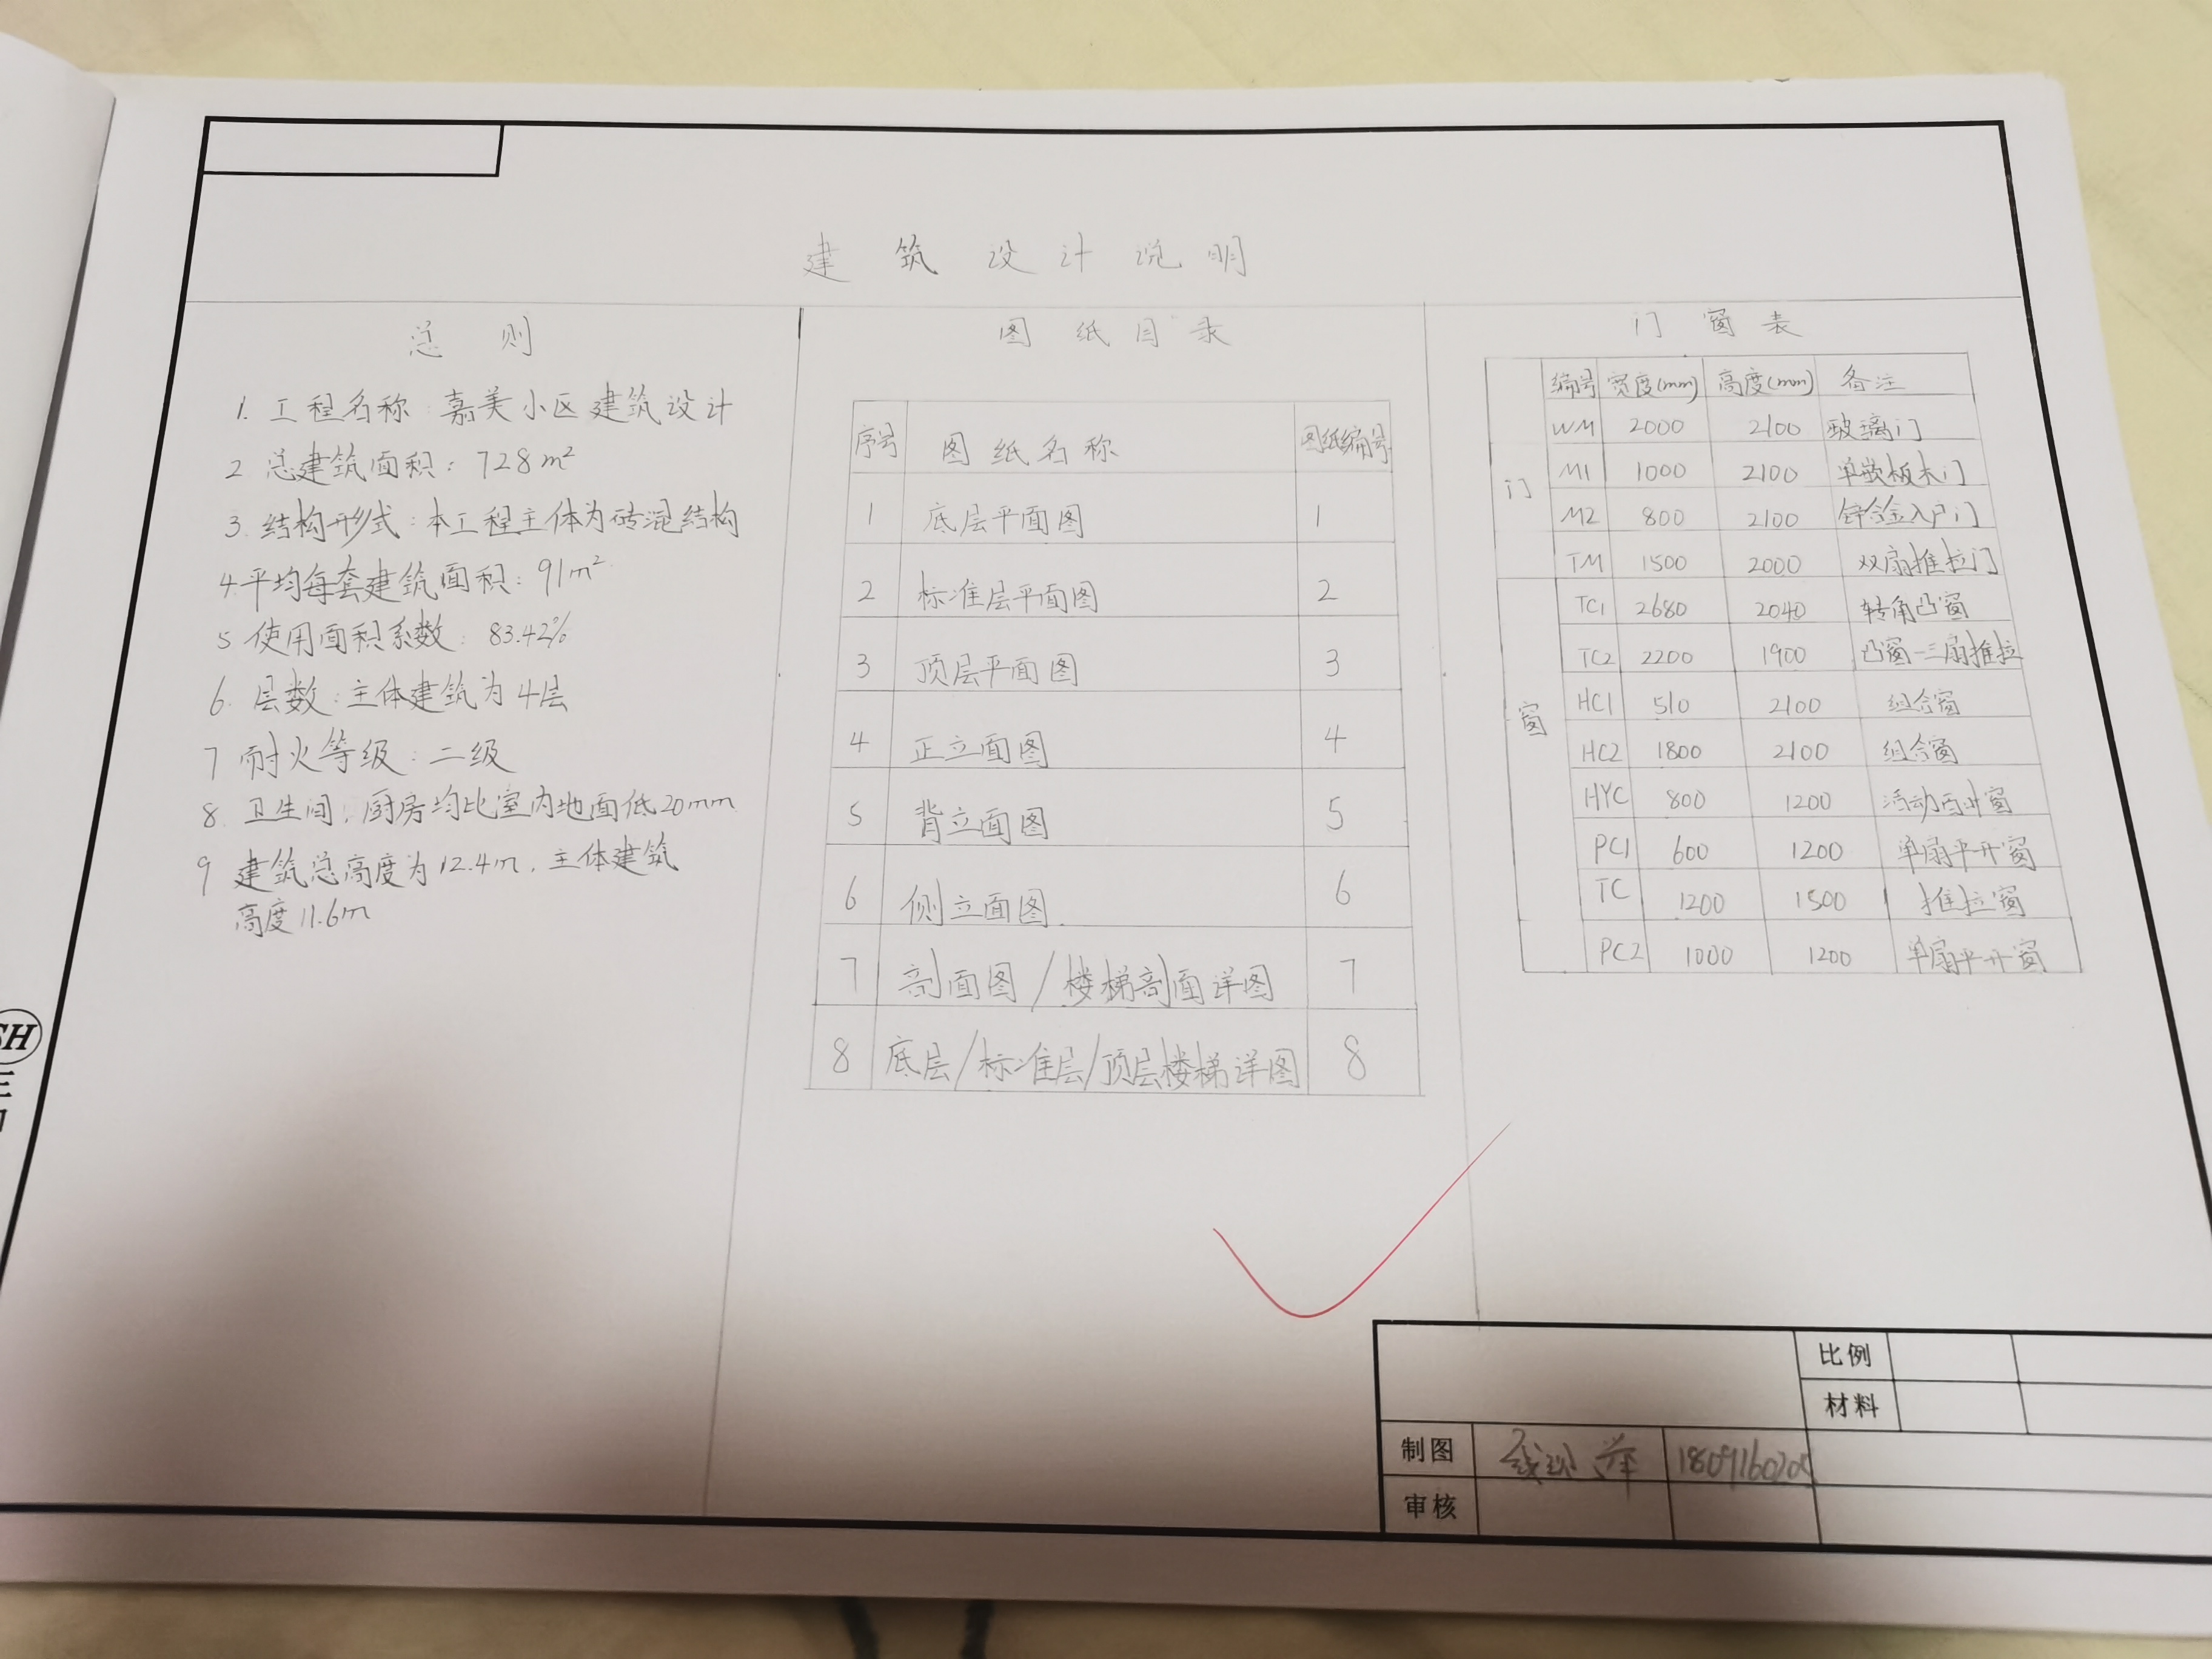 建筑设计说明
总则
1. 工程名称:嘉美小区建筑设计
2 总建筑面积:728m²
3. 结构形式:本工程主体为砖混结构
4.平均每套建筑面积:91m²
5 使用面积系数:83.42%
6. 层数:主体建筑为4层
7 耐火等级:二级
8. 卫生间,厨房均比室内地面低20mm
9 建筑总高度为12.4m,主体建筑
高度11.6m
图纸目录
序号 图纸名称 图纸编号
1 底层平面图 1
2 标准层平面图 2
3 顶层平面图 3
4 正立面图 4
5 背立面图 5
6 侧立面图. 6
7 剖面图/楼梯剖面详图 7
8 底层/标准层/顶层楼梯详图 8
门窗表
编号 宽度(mm) 高度(mm) 备注
门
WM 2000 2100 玻璃门
M1 1000 2100 单嵌板木门
M2 800 2100 锌合金入户门
TM 1500 2000 双扇推拉门
窗
TC1 2680 2040 转角凸窗
TC2 2200 1900 凸窗-三扇推拉
HC1 510 2100 组合窗
HC2 1800 2100 组合窗
HYC 800 1200 活动百叶窗
PC1 600 1200 单扇平开窗
TC 1200 1500 推拉窗
PC2 1000 1200 单扇平开窗
比例
材料
制图
审核
SH